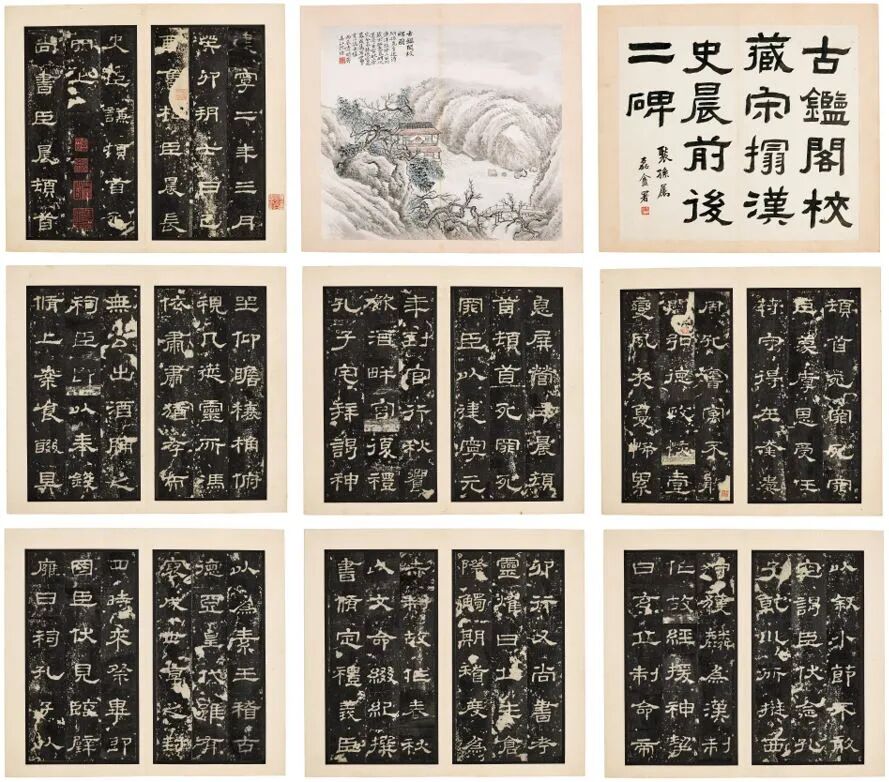 古鑑閣校
藏宋搨漢
史晨前後
二碑
磊盦署
古鑑閣校
碑圖
建寧二年三月
癸卯朔七日己
酉魯相臣晨長
史臣謙頓首死
罪上
尚書臣晨頓首
頓首死罪死罪
臣蒙厚恩受任
符守得在奎婁
周孔舊寓不能
闡弘德政恢壹
變夙夜憂怖累
息屏營臣晨頓
首頓首死罪死
罪臣以建寧元
年到官行秋饗
飲酒畔宮復禮
孔子宅拜謁神
坐仰瞻榱桷俯
視几筵靈所馮
依肅肅猶存而
無公出酒脯之
祠臣即以奉錢
脩上案食醊具
以叙小節不敢
空謁臣伏念孔
子乾坤所挺西
狩獲麟為漢制
作故經援神挈
曰玄丘制命帝
卯行又尚書考
靈燿曰丘生倉
際觸期稽度為
赤制故作春秋
以文命綴紀撰
書脩定禮義臣
以為素王稽古
德亞皇代雖有
褒成世享之封
四時來祭畢即
國臣伏見臨辟
雍日祠孔子以